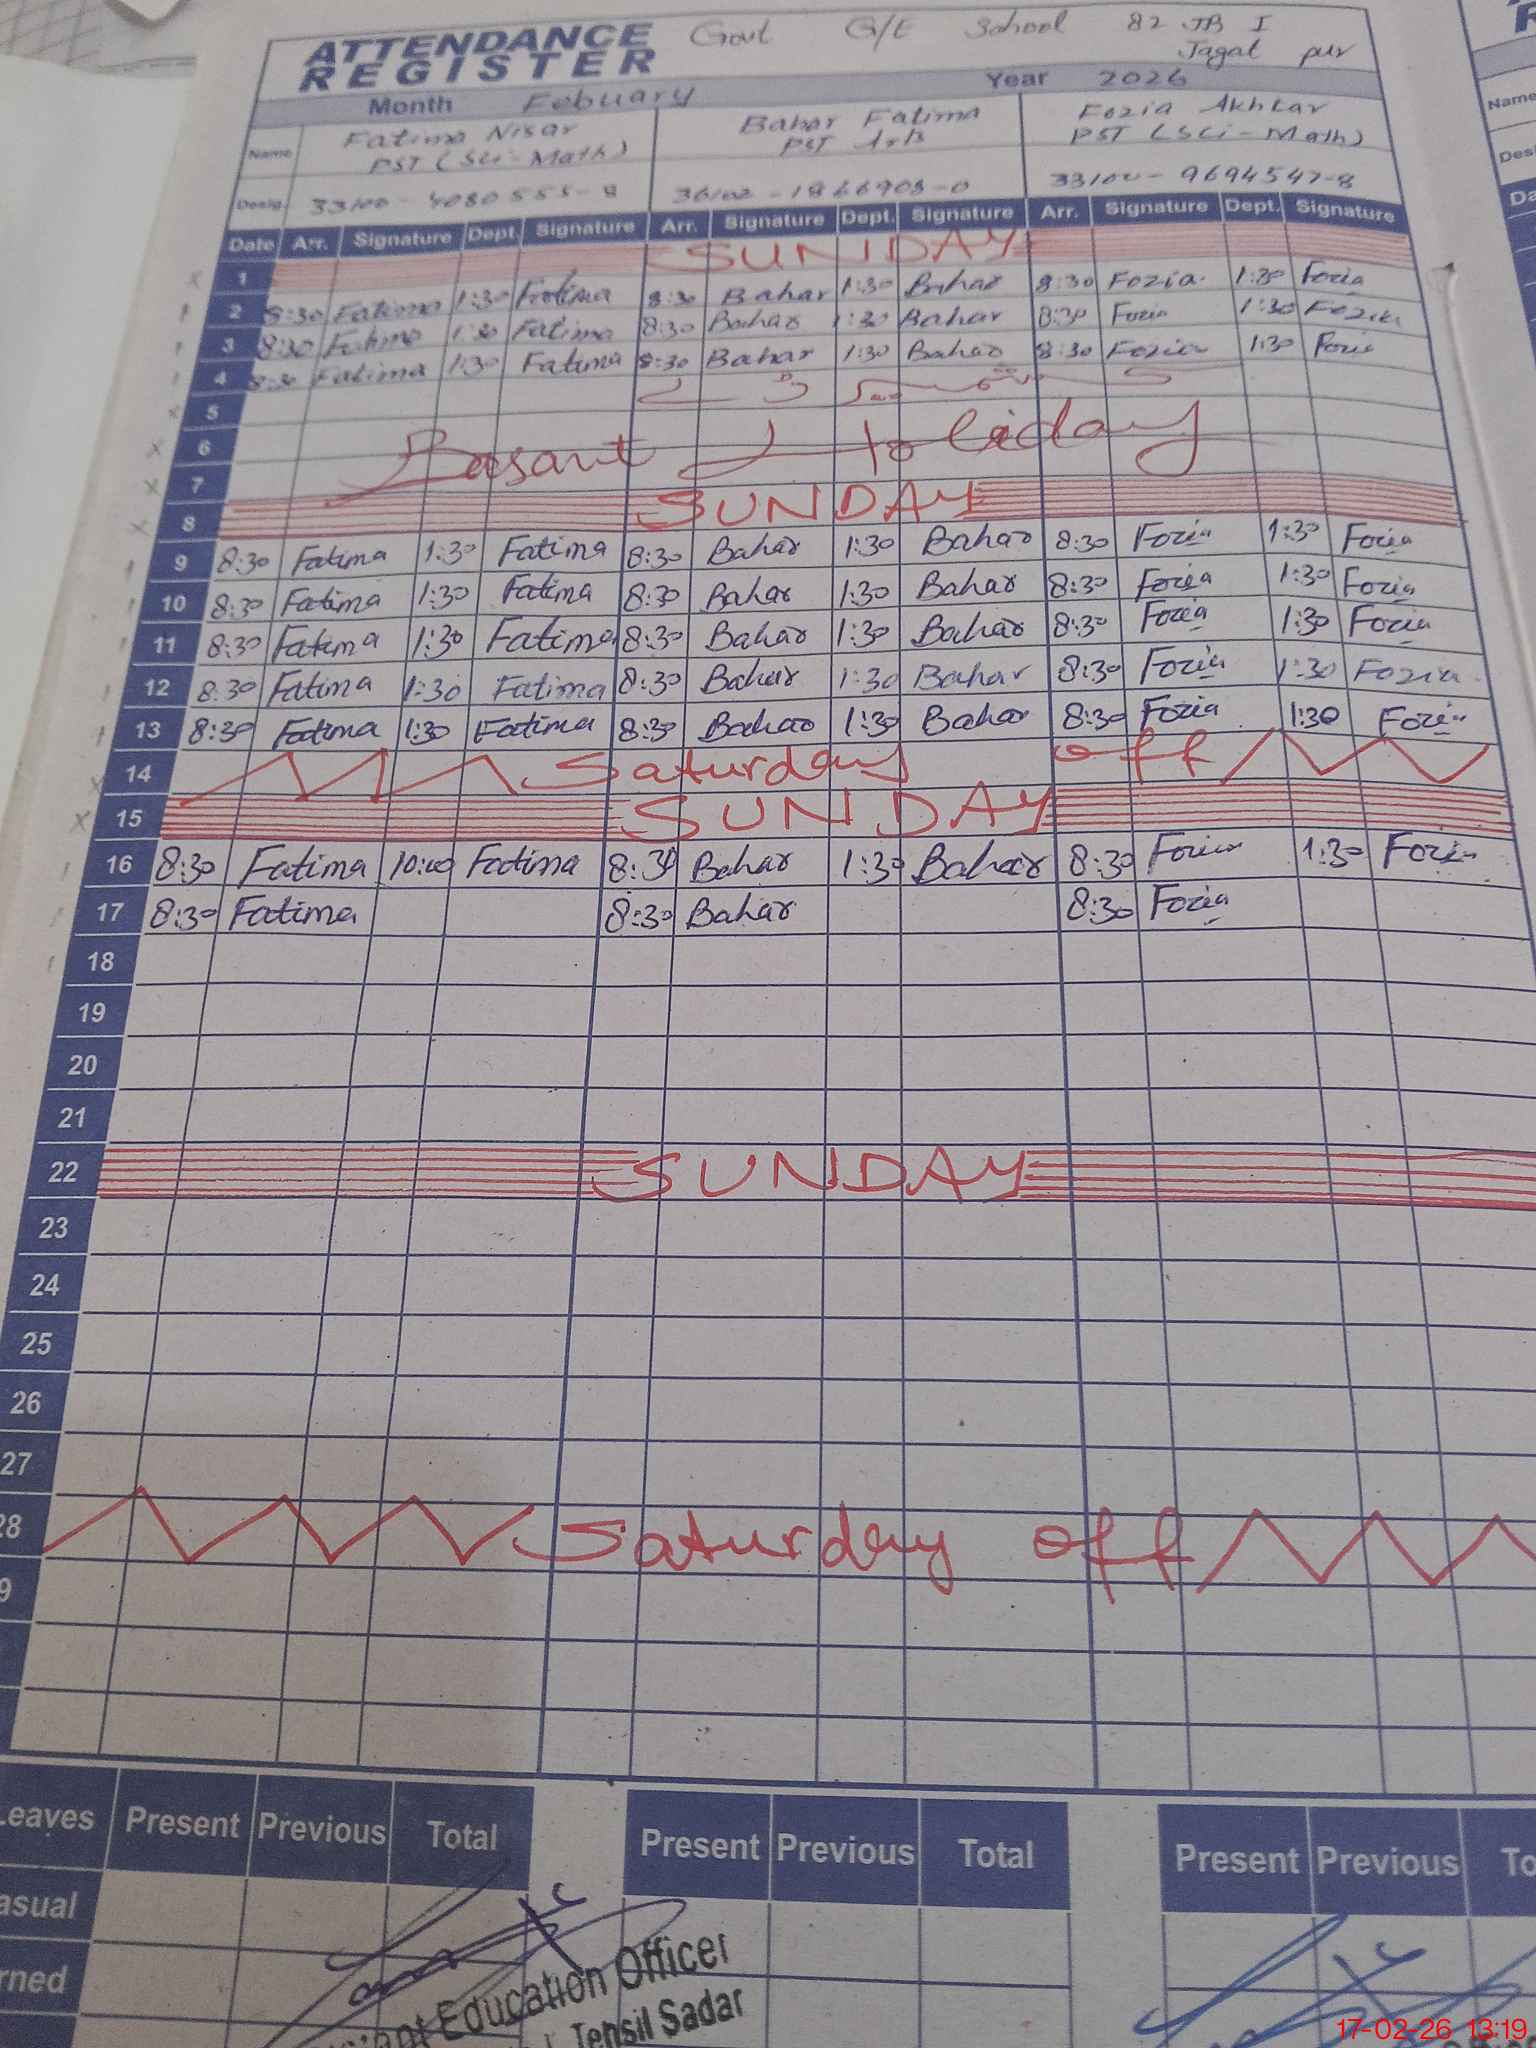 ATTENDANCE REGISTER
Govt G/E School 82 JB I
Jagat pur
Month Febuary Year 2026
Name Fatima Nisar Bahar Fatima Fozia Akhtar
PST (Sci-Math) PST Arts PST (Sci-Math)
Desig. 33100-4080555-8 36102-1866908-0 33100-9694547-8
Date Arr. Signature Dept. Signature Arr. Signature Dept. Signature Arr. Signature Dept. Signature
1 SUNDAY
2 8:30 Fatima 1:30 Fatima 8:30 Bahar 1:30 Bahar 8:30 Fozia 1:30 Fozia
3 8:30 Fatima 1:30 Fatima 8:30 Bahar 1:30 Bahar 8:30 Fozia 1:30 Fozia
4 8:30 Fatima 1:30 Fatima 8:30 Bahar 1:30 Bahar 8:30 Fozia 1:30 Fozia
5
6 Basant Holiday
7
8 SUNDAY
9 8:30 Fatima 1:30 Fatima 8:30 Bahar 1:30 Bahar 8:30 Fozia 1:30 Fozia
10 8:30 Fatima 1:30 Fatima 8:30 Bahar 1:30 Bahar 8:30 Fozia 1:30 Fozia
11 8:30 Fatima 1:30 Fatima 8:30 Bahar 1:30 Bahar 8:30 Fozia 1:30 Fozia
12 8:30 Fatima 1:30 Fatima 8:30 Bahar 1:30 Bahar 8:30 Fozia 1:30 Fozia
13 8:30 Fatima 1:30 Fatima 8:30 Bahar 1:30 Bahar 8:30 Fozia 1:30 Fozia
14 Saturday off
15 SUNDAY
16 8:30 Fatima 10:00 Fatima 8:30 Bahar 1:30 Bahar 8:30 Fozia 1:30 Fozia
17 8:30 Fatima 8:30 Bahar 8:30 Fozia
18
19
20
21
22 SUNDAY
23
24
25
26
27
28 Saturday off
9
Leaves Present Previous Total Present Previous Total Present Previous To
asual
rned
Education Officer
Tehsil Sadar
17-02-26 13:19